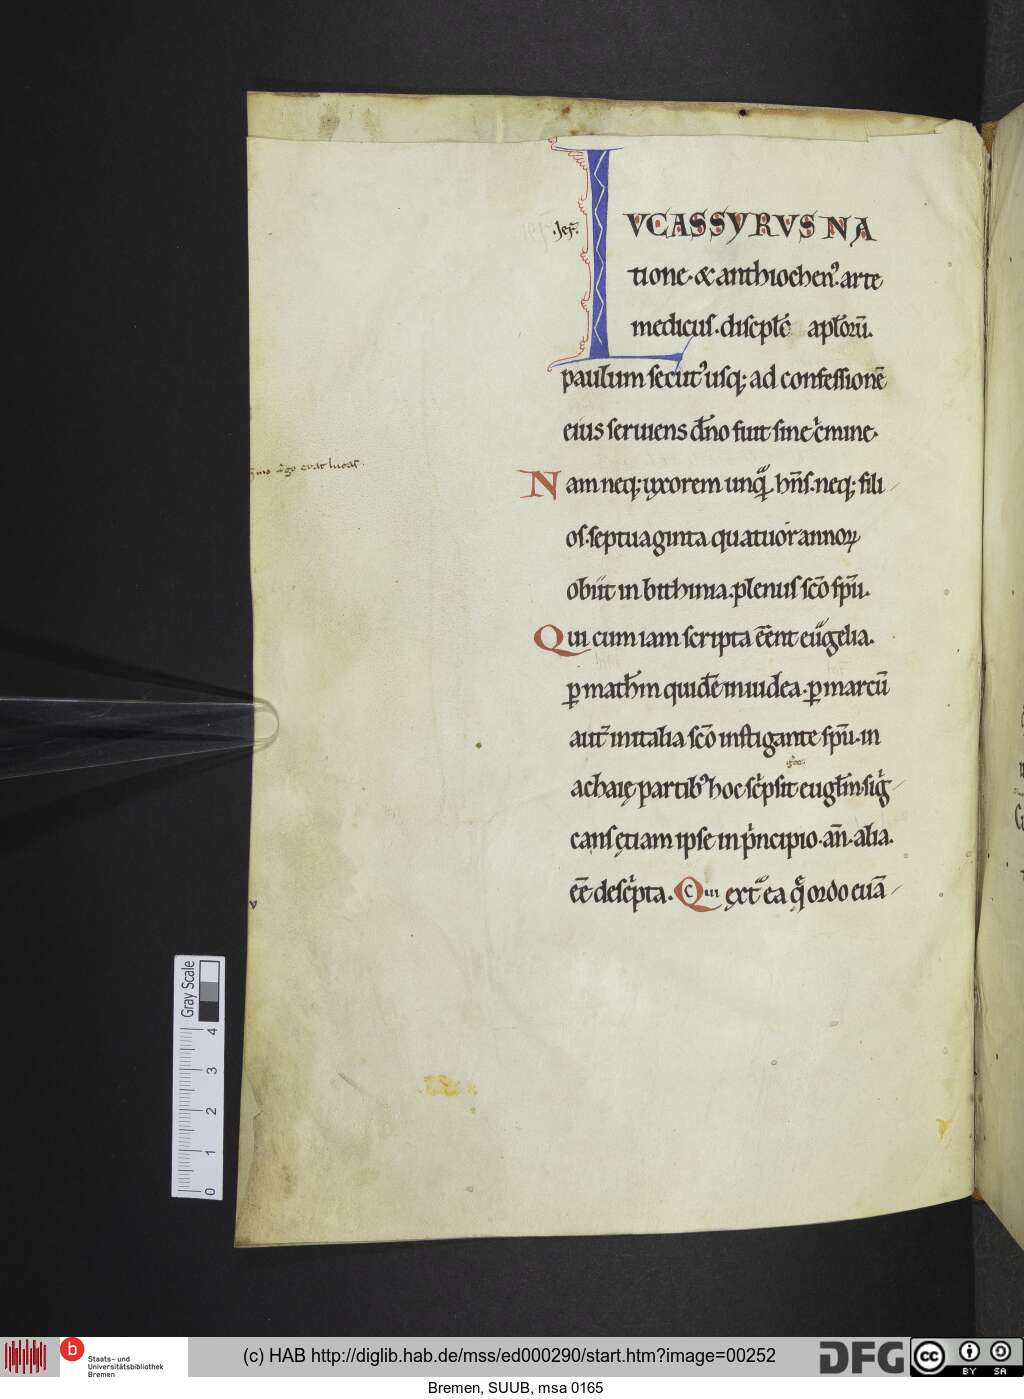 LVCAS SYRVS NA
tione· & anthiochenꝰ. arte
medicus· discipłs apłorū.
paulum secutꝰ usq; ad confessionē
eius seruiens dn̄o fuit sine cͥmine·
Nam neq; uxorem unqͣ hn̄s· neq; fili
os· septuaginta quatuor annoꝝ
obiit in bithinia. plenus scō spū.
Qui cum iam scripta eēnt euͣgelia.
ꝑ matħm quidē in iudea· ꝑ marcū
aut̄ in italia scō instigante spū· in
achaię partibꝰ hoc scͥpsit eugłm· sigͥ
cans ętiam ipse in pͥncipio· an̄· alia.
eē descͥpta. Cui ext͛ ea q̄ ordo euā
Gray Scale
0 1 2 3 4
b Staats- und
Universitätsbibliothek
Bremen
(c) HAB http://diglib.hab.de/mss/ed000290/start.htm?image=00252
DFG
cc BY SA
Bremen, SUUB, msa 0165